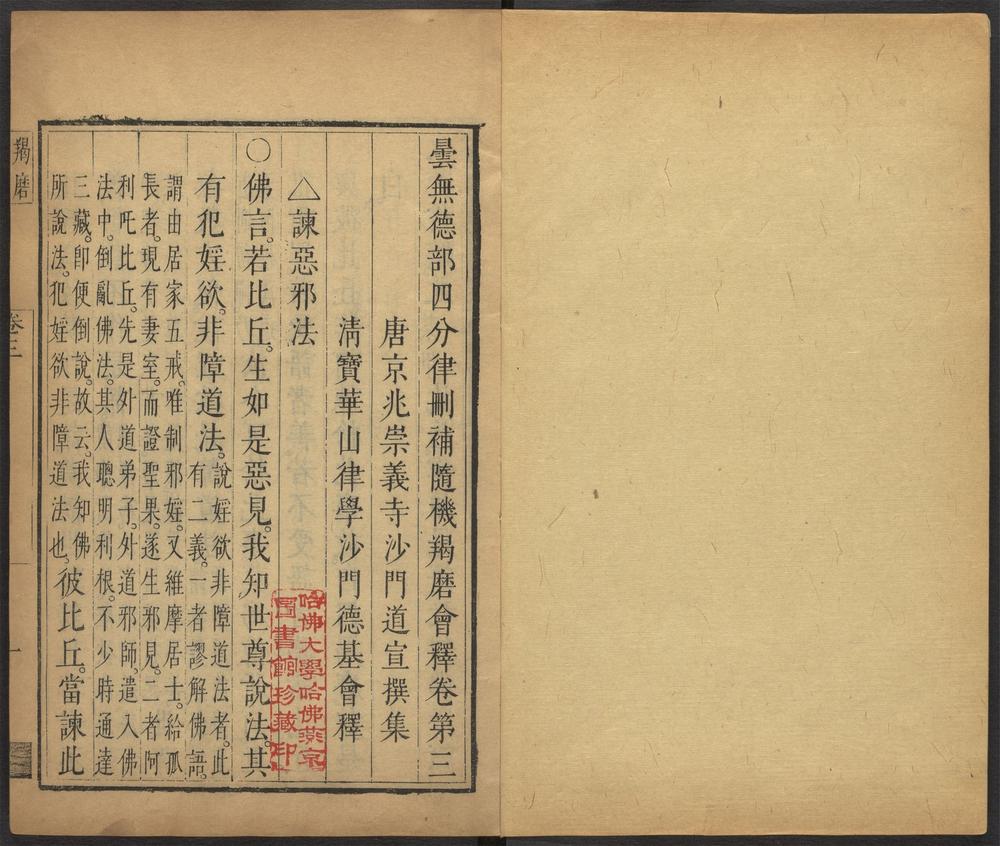 曇無德部四分律刪補隨機羯磨會釋卷第三
唐京兆崇義寺沙門道宣撰集
清寶華山律學沙門德基會釋
△諫惡邪法
○佛言。若比丘。生如是惡見。我知世尊說法。其
有犯婬欲。非障道法。
說婬欲非障道法者。此
有二義。一者謬解佛語。
謂由居家五戒。唯制邪婬。又維摩居士。給孤
長者。現有妻室。而證聖果。遂生邪見。二者阿
利吒比丘。先是外道弟子。外道邪師。遣入佛
法中。倒亂佛法。其人聰明利根。不少時通達
三藏。卽便倒說。故云。我知佛
所說法。犯婬欲非障道法也。
彼比丘。當諫此
羯磨
卷三
一
哈佛大學哈佛燕京
圖書館珍藏印